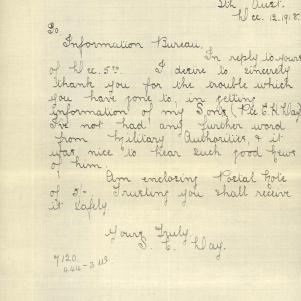 Sth Aust.
Dec. 12. 1918.
To
Information Bureau.
In reply to yours
of Dec. 5th I desire to sincerely
thank you for the trouble which
you have gone to, in getting
information of my Son's (Pte E. H. Day)
I've not had any further word
from Military Authorities, & it
was nice to hear such good news
of him.
Am enclosing Postal Note
of Trusting you shall receive
it safely
Yours Truly
S. E. Day.
7120